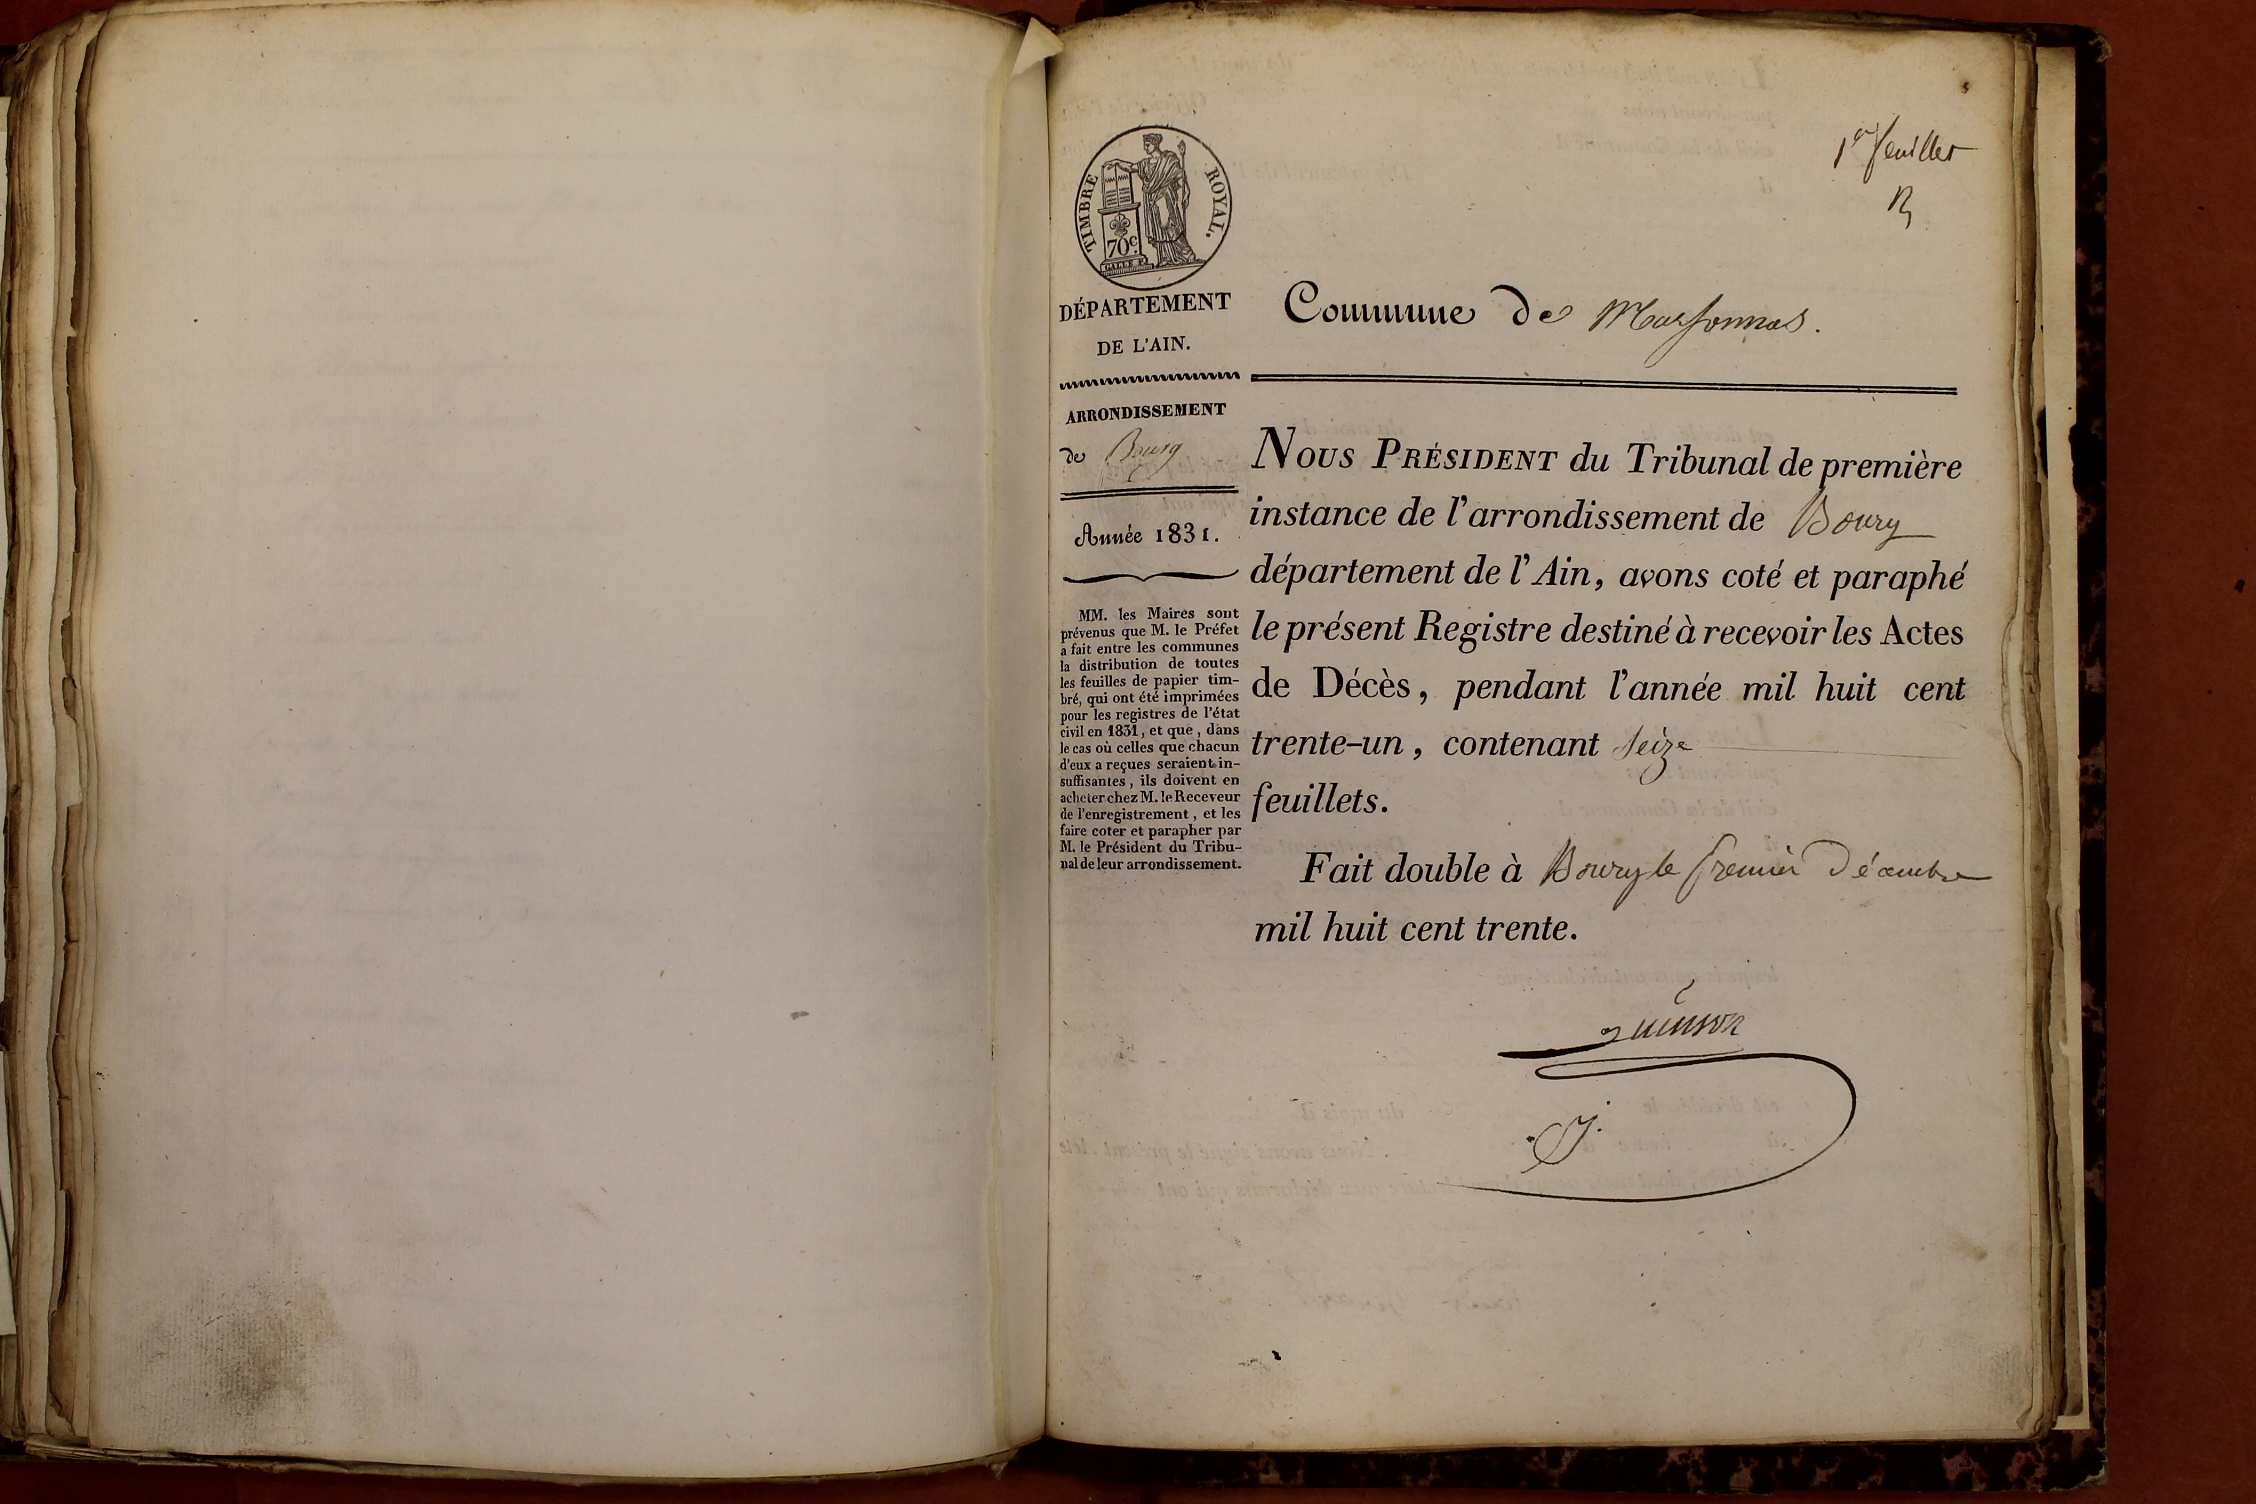 1er feuillet
TIMBRE ROYAL.
70c
DÉPARTEMENT
DE L'AIN.
ARRONDISSEMENT
de Bourg
Année 1831.
MM. les Maires sont
prévenus que M. le Préfet
a fait entre les communes
la distribution de toutes
les feuilles de papier tim-
bré, qui ont été imprimées
pour les registres de l'état
civil en 1831, et que, dans
le cas où celles que chacun
d'eux a reçues seraient in-
suffisantes, ils doivent en
acheter chez M. le Receveur
de l'enregistrement, et les
faire coter et parapher par
M. le Président du Tribu-
nal de leur arrondissement.
Commune de Marsonnas.
NOUS PRÉSIDENT du Tribunal de première
instance de l'arrondissement de Bourg
département de l'Ain, avons coté et paraphé
le présent Registre destiné à recevoir les Actes
de Décès, pendant l'année mil huit cent
trente-un, contenant seize
feuillets.
Fait double à Bourg le premier Décembre
mil huit cent trente.